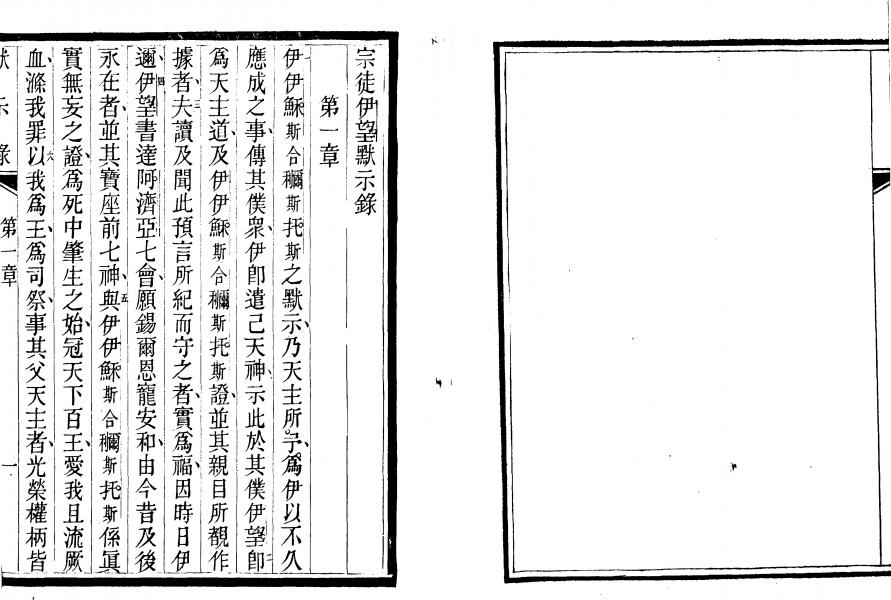 宗徒伊望默示錄
第一章
伊伊穌斯合穪斯托斯之默示乃天主所予爲伊以不久
應成之事傳其僕衆伊卽遣己天神示此於其僕伊望卽
爲天主道及伊伊穌斯合穪斯托斯證並其親目所覩作
據者夫讀及聞此預言所紀而守之者實爲福因時日伊
邇伊望書達阿濟亞七會願錫爾恩寵安和由今昔及後
永在者並其寶座前七神與伊伊穌斯合穪斯托斯係眞
實無妄之證爲死中肇生之始冠天下百王愛我且流厥
血滌我罪以我爲王爲司祭事其父天主者光榮權柄皆
默示錄 第一章 一